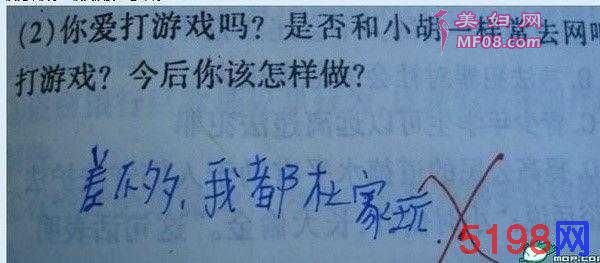 美妇网
MF08.com
(2)你爱打游戏吗？是否和小胡一样常去网吧
打游戏？今后你该怎样做？
差不多，我都在家玩.
5198网
MOP.COM